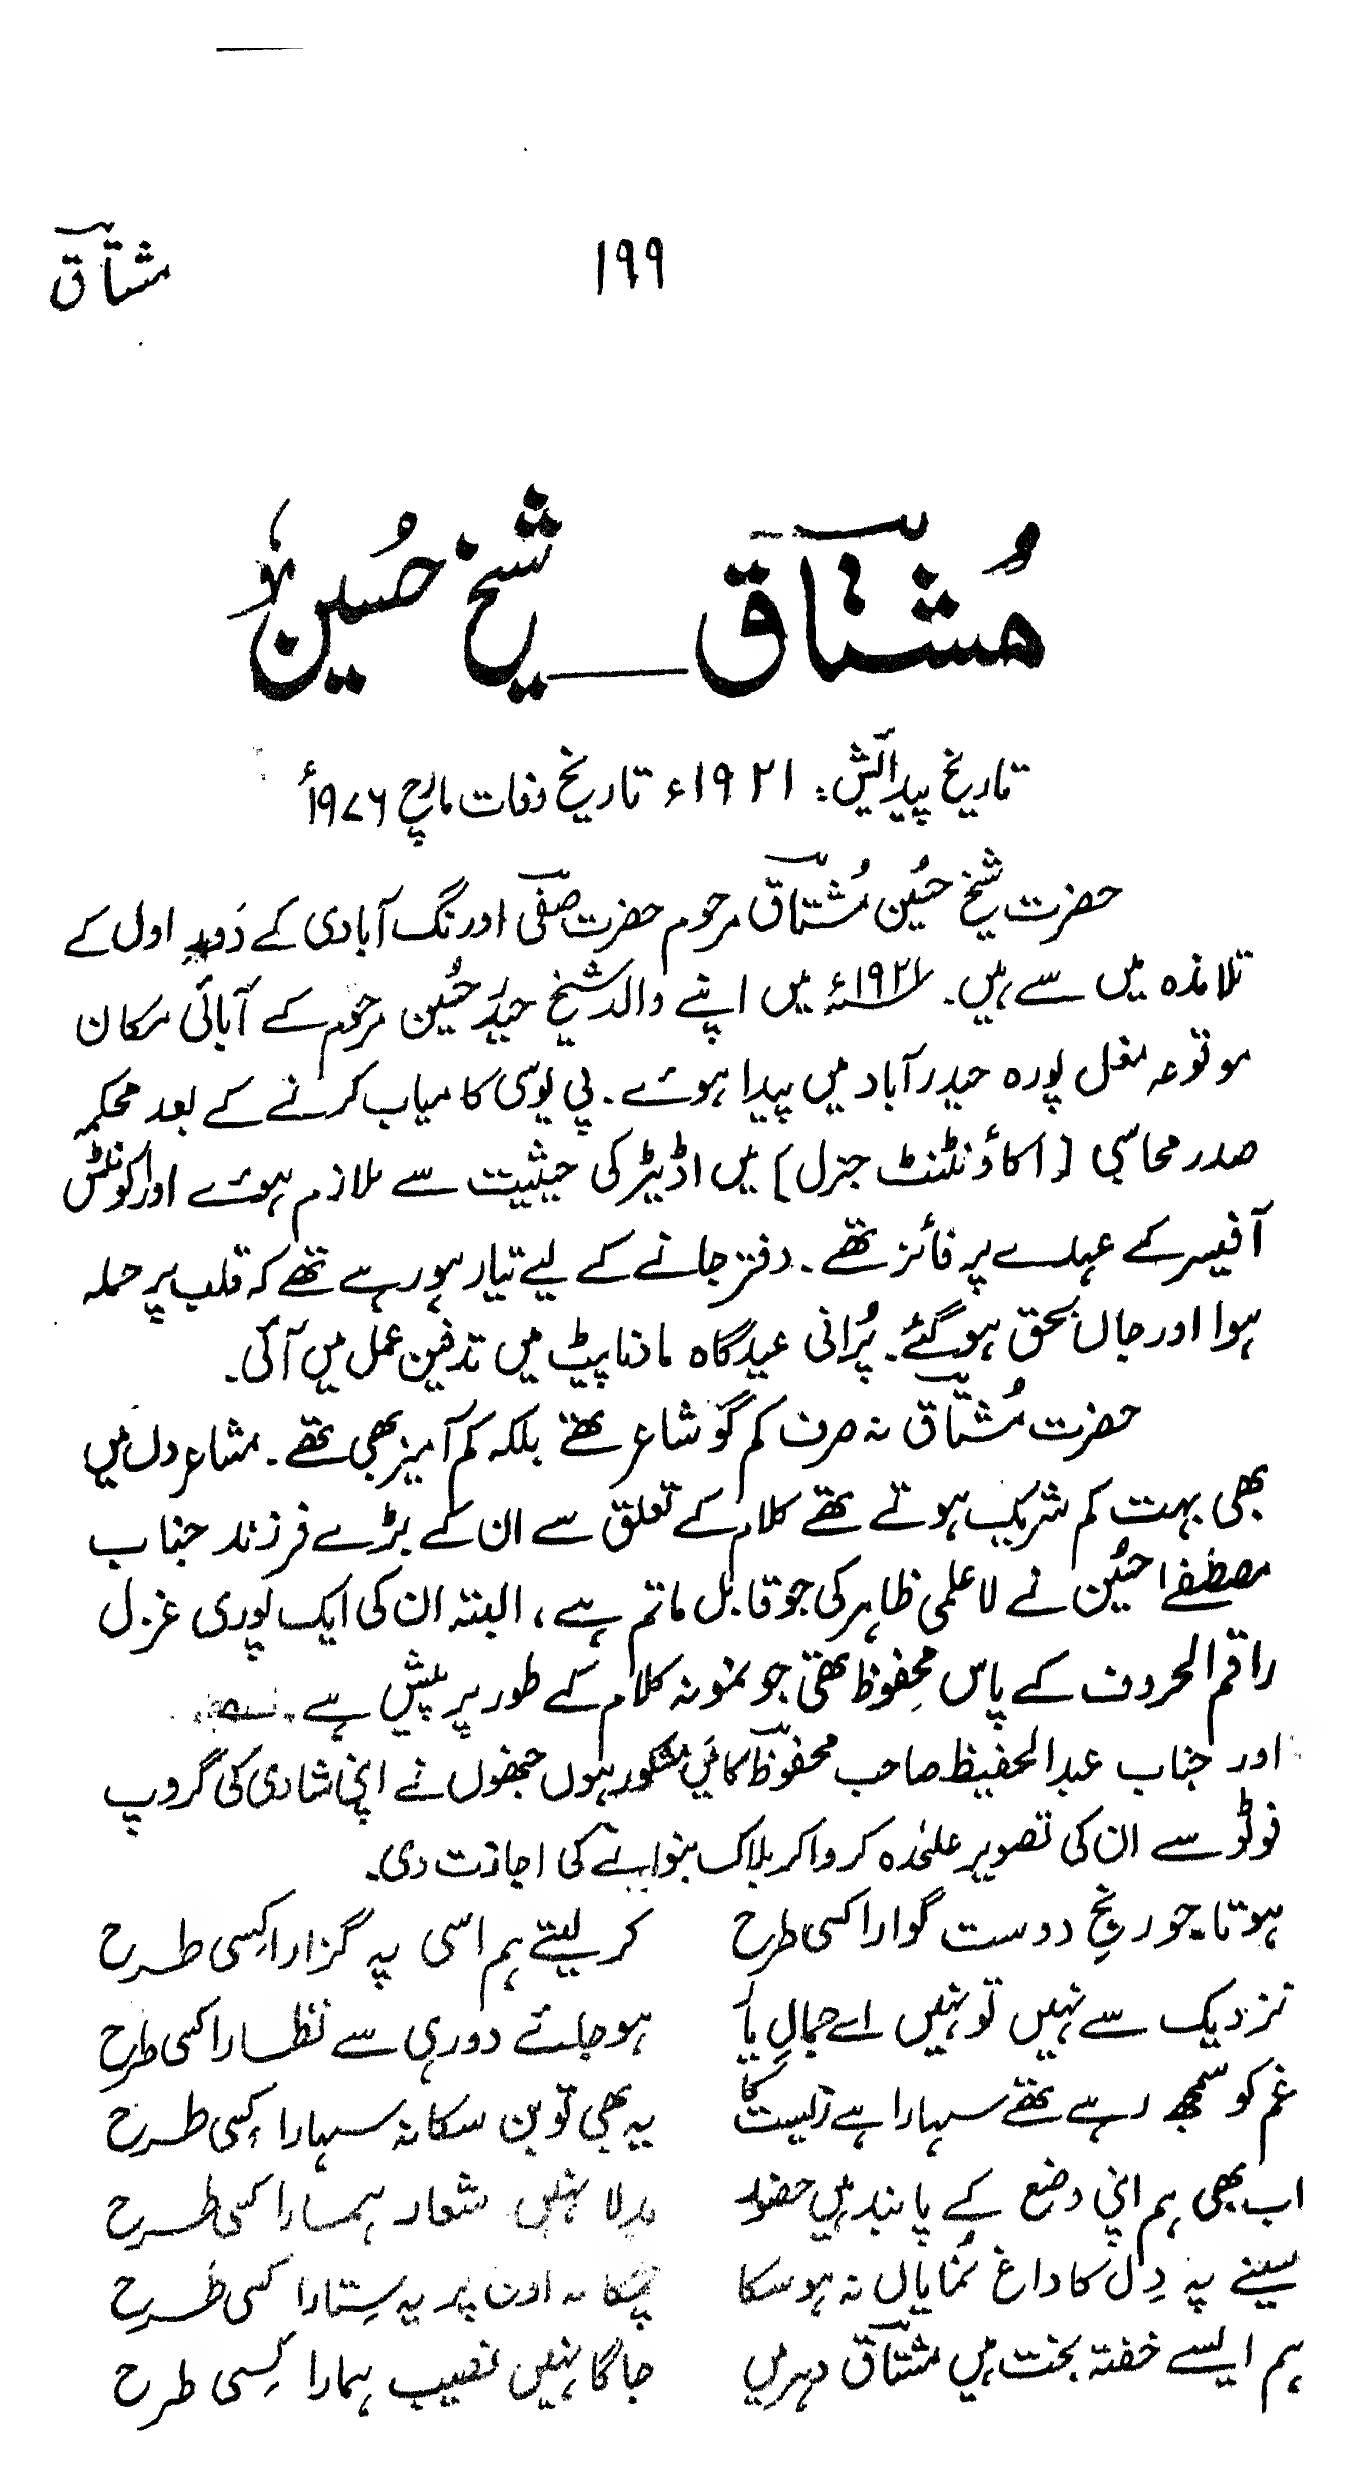 ۱۹۹
مشتاق
مُشتاق ـــ شیخ حُسین
تاریخ پیدائش: ۱۹۲۱ء تاریخ وفات مارچ ۱۹۷۶ء
حضرت شیخ حُسین مُشتاق مرحوم حضرت صفی اورنگ آبادی کے دَورِ اول کے
تلامذہ میں سے ہیں۔ ۱۹۲۱ء میں اپنے والد شیخ حیدر حُسین مرحوم کے آبائی مکان
موقوعہ مغل پورہ حیدرآباد میں پیدا ہوئے۔ پی یوسی کامیاب کرنے کے بعد محکمہ
صدر محاسبی [اکاؤنٹنٹ جنرل] میں اڈیٹر کی حیثیت سے ملازم ہوئے اور اکونٹس
آفیسر کے عہدے پر فائز تھے۔ دفتر جانے کے لیے تیار ہو رہے تھے کہ قلب پر حملہ
ہوا اور جاں بحق ہو گئے۔ پُرانی عیدگاہ مادناپیٹ میں تدفین عمل میں آئی۔
حضرت مُشتاق نہ صرف کم گو شاعر تھے بلکہ کم آمیز بھی تھے۔ مشاعروں میں
بھی بہت کم شریک ہوتے تھے کلام کے تعلق سے ان کے بڑے فرزند جناب
مصطفےٰ حُسین نے لاعلمی ظاہر کی جو قابل ماتم ہے، البتہ ان کی ایک پوری غزل
راقم الحروف کے پاس محفوظ تھی جو نمونہ کلام کے طور پر پیش ہے۔
اور جناب عبدالحفیظ صاحب محفوظ کا میں مشکور ہوں جنھوں نے اپنی شادی کی گروپ
فوٹو سے ان کی تصویر علیٰحدہ کرواکر بلاک بنوانے کی اجازت دی۔
ہوتا جو رنجِ دوست گوارا کسی طرح کر لیتے ہم اسی پہ گزارا کِسی طرح
نزدیک سے نہیں تو نہیں اے جمالِ یار ہو جائے دور ہی سے نظارا کسی طرح
غم کو سمجھ رہے تھے سہارا ہے زیست کا یہ بھی تو بن سکا نہ سہارا کِسی طرح
اب بھی ہم اپنی وضع کے پابند ہیں حضور بدلا نہیں شعار ہمارا کسی طرح
سینے پہ دِل کا داغ نُمایاں نہ ہو سکا چمکا نہ اوج پر یہ سِتارا کسی طرح
ہم ایسے خفتہ بخت ہیں مشتاق دہر میں جاگا نہیں نصیب ہمارا کِسی طرح